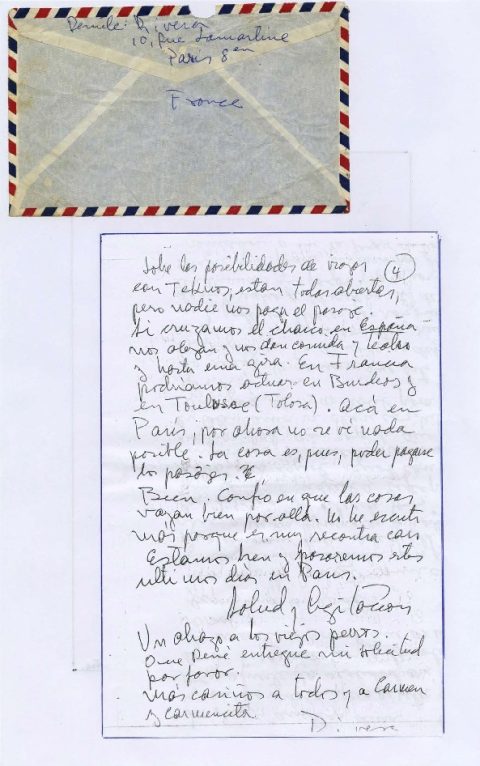 10, Rue Lamartine
Paris 8en
France
4
Sobre las posibilidades de viajar
con Teknos, estan todas abiertas,
pero nadie nos paga el pasaje.
Si cruzamos el charco en España
nos alojan y nos dan comida y teatro
y hasta una gira. En Francia
podriamos actuar en Burdeos y
en Toulouse (Tolosa). Acá en
París, por ahora no se vé nada
posible. La cosa es, pues, poder pagarse
los pasajes.
Bien. Confío en que las cosas
vayan bien por allá. No he escrito
más porque es muy recontra caro
Estamos bien y pasaremos estos
ultimos días en Paris.
Salud y
Un abrazo a los viejos perros.
Que René entregue mi solicitud
por favor.
más cariños a todos y a Carmen
y Carmencita